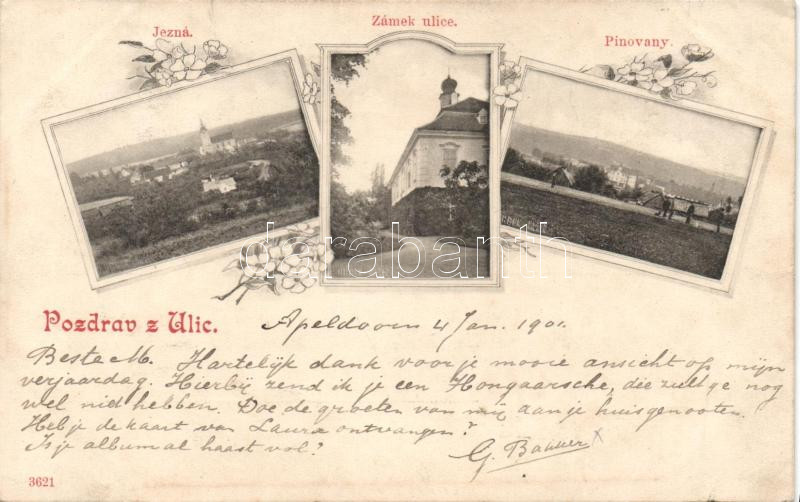 Jezná.
Zámek ulice.
Pinovany.
darabanth
Pozdrav z Ulic.
Apeldoorn 4 Jan. 1901.
Beste M. Hartelijk dank voor je mooie ansicht op mijn
verjaardag. Hierbij zend ik je een Hongaarsche, die zult ge nog
wel niet hebben. Doe de groeten van mij aan je huisgenooten.
Heb je de kaart van Laura ontvangen?
Is je album al haast vol?
G. Bakker
3621